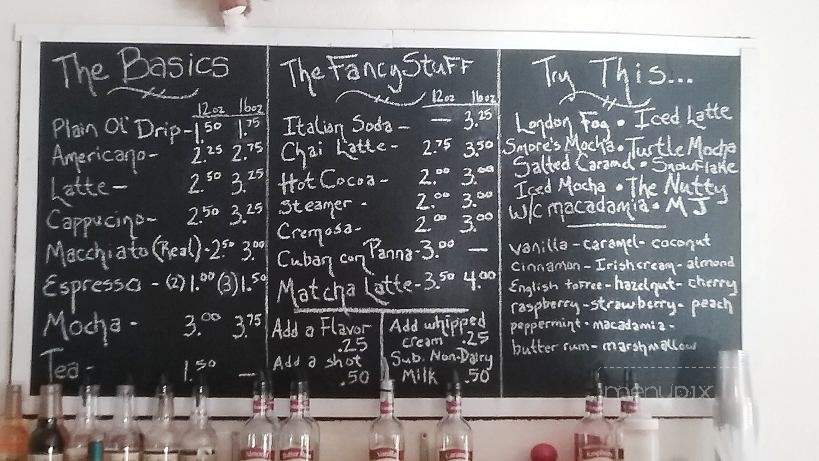 The Basics
12oz 16oz
Plain Ol' Drip - 1.50 1.75
Americano - 2.25 2.75
Latte - 2.50 3.25
Cappucino - 2.50 3.25
Macchiato (Real) - 2.50 3.00
Espresso - (2) 1.00 (3) 1.50
Mocha - 3.00 3.75
Tea - 1.50 —
The Fancy Stuff
12oz 16oz
Italian Soda - — 3.25
Chai Latte - 2.75 3.50
Hot Cocoa - 2.00 3.00
Steamer - 2.00 3.00
Cremosa - 2.00 3.00
Cuban con Panna - 3.00 —
Matcha Latte - 3.50 4.00
Add a Flavor
.25
Add a shot
.50
Add whipped
cream .25
Sub. Non-Dairy
Milk .50
Try This...
London Fog • Iced Latte
Smore's Mocha • Turtle Mocha
Salted Caramel • Snowflake
Iced Mocha • The Nutty
w/c macadamia • MJ
vanilla - caramel - coconut
cinnamon - Irish cream - almond
English toffee - hazelnut - cherry
raspberry - strawberry - peach
peppermint - macadamia -
butter rum - marshmallow
menupix
Almond
Butter Rum
Vanilla
Caramel
Raspberry